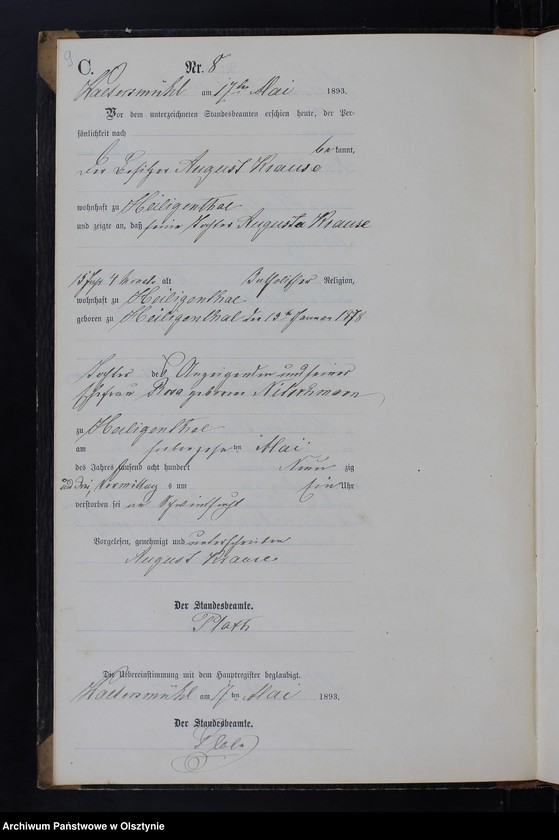 9
C.
Nr. 8
am 17ten Mai 1893.
Vor dem unterzeichneten Standesbeamten erschien heute, der Per-
sönlichkeit nach
bekannt,
Der Besitzer August Krause
wohnhaft zu Heiligenthal
und zeigte an, daß seine Tochter Augusta Krause
15 Jahr 4 Monate alt katholischer Religion,
wohnhaft zu Heiligenthal
geboren zu Heiligenthal den Januar 1878
Tochter des Anzeigenden und seiner
Ehefrau Rosa geborene
zu Heiligenthal
am siebzehnten Mai
des Jahres tausend acht hundert Neun zig
und drei, Vormittags um Ein Uhr
verstorben sei an Schwindsucht
Vorgelesen, genehmigt und unterschrieben
August Krause
Der Standesbeamte.
Die Uebereinstimmung mit dem Hauptregister beglaubigt.
am 17ten Mai 1893.
Der Standesbeamte.
Archiwum Państwowe w Olsztynie